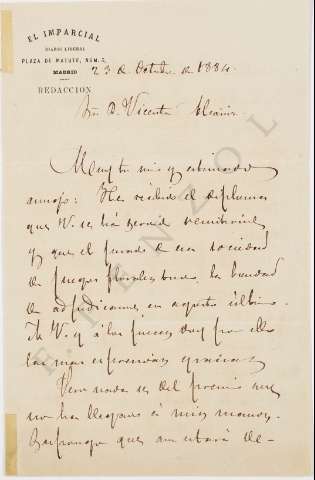 EL IMPARCIAL
DIARIO LIBERAL
PLAZA DE MATUTE, NÚM. 5,
MADRID
REDACCION
23 de Octubre de 1884.
Sr. D. Vicente
Muy Sr. mio y estimado
amigo: He recibido el diploma
que V. se ha servido remitirme
y que el jurado de esa sociedad
de juegos florales tuvo la bondad
de adjudicarme en aquel último.
A V. y á los jueces doy por ello
las mas expresivas gracias.
Pero nada del premio
no ha llegado á mis manos.
Supongo que estará de-
E. TENZOL